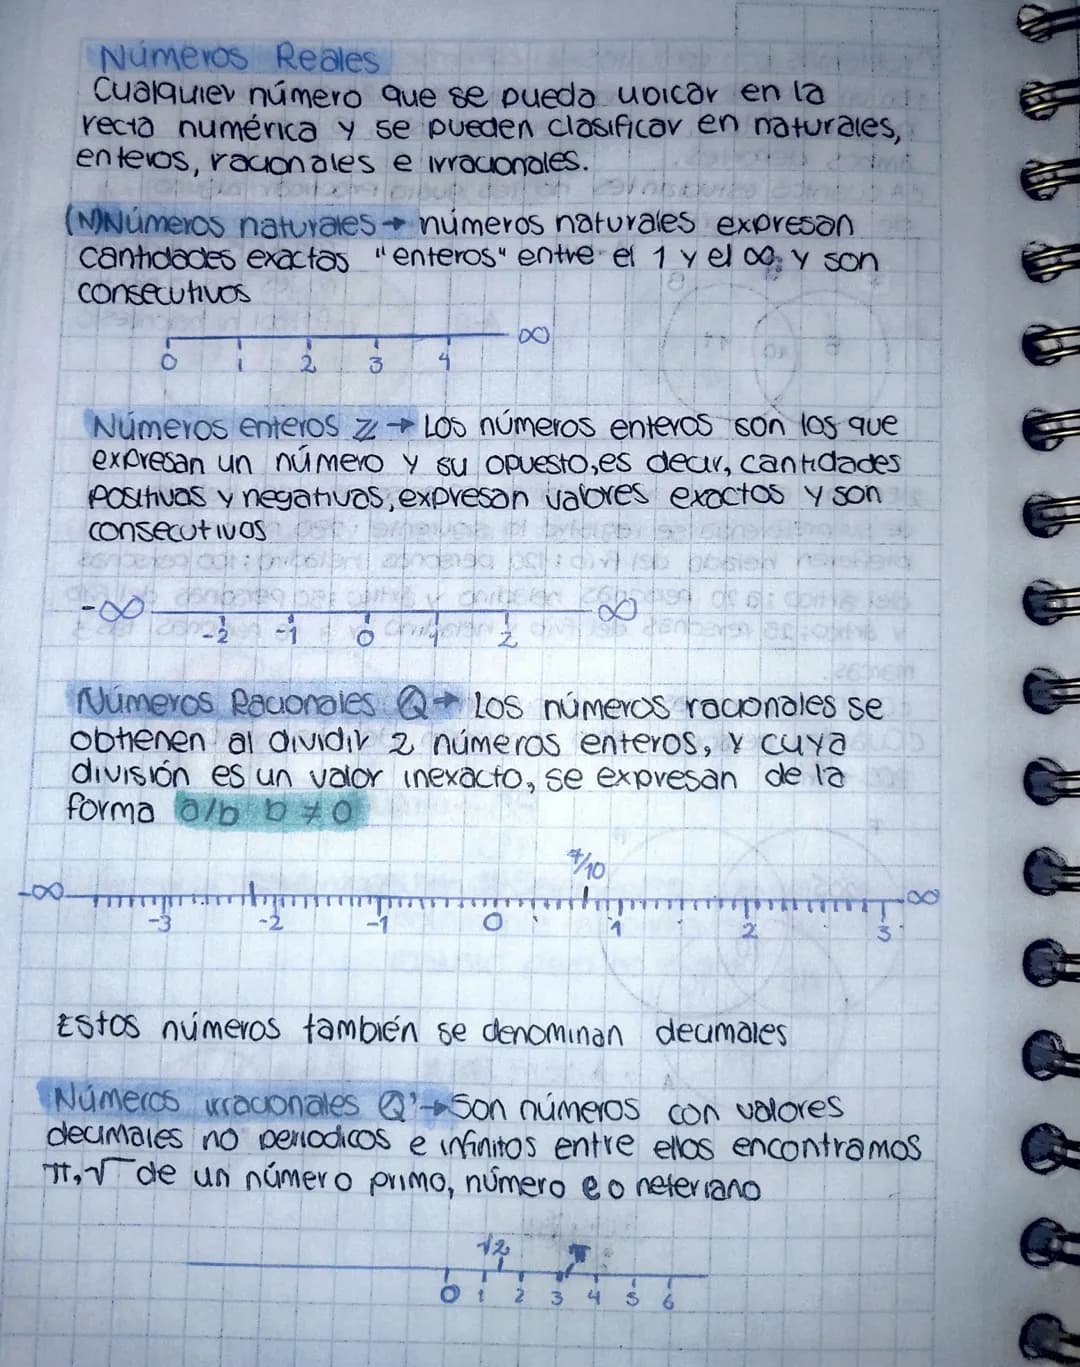 Números Reales
Cualquier número que se pueda ubicar en la
recta numérica y se pueden clasificar en naturales,
enteros, racionales e irracionales.
(N)Números naturales → números naturales expresan
cantidades exactas "enteros" entre el 1 y el ∞, y son
consecutivos
0 1 2 3 4 ∞
Números enteros ℤ → Los números enteros son los que
expresan un número y su opuesto, es decir, cantidades
positivas y negativas, expresan valores exactos y son
consecutivos
-∞ -2 -1 0 1 2 ∞
Números Racionales Q → Los números racionales se
obtienen al dividir 2 números enteros, y cuya
división es un valor inexacto, se expresan de la
forma a/b b ≠ 0
7/10
-∞ -3 -2 -1 0 1 2 3 ∞
Estos números también se denominan decimales
Números irracionales Q' → Son números con valores
decimales no periodicos e infinitos entre ellos encontramos
π, √ de un número primo, número e o neteriano
√2 π
0 1 2 3 4 5 6